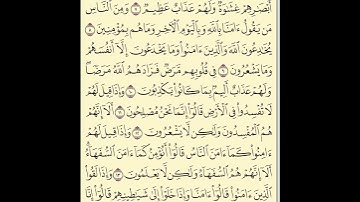 أَبْصَٰرِهِمْ غِشَٰوَةٌ وَلَهُمْ عَذَابٌ عَظِيمٌ ٧ وَمِنَ ٱلنَّاسِ
مَن يَقُولُ ءَامَنَّا بِٱللَّهِ وَبِٱلْيَوْمِ ٱلْءَاخِرِ وَمَا هُم بِمُؤْمِنِينَ ٨
يُخَٰدِعُونَ ٱللَّهَ وَٱلَّذِينَ ءَامَنُوا۟ وَمَا يَخْدَعُونَ إِلَّآ أَنفُسَهُمْ
وَمَا يَشْعُرُونَ ٩ فِى قُلُوبِهِم مَّرَضٌ فَزَادَهُمُ ٱللَّهُ مَرَضًا
وَلَهُمْ عَذَابٌ أَلِيمٌۢ بِمَا كَانُوا۟ يَكْذِبُونَ ١٠ وَإِذَا قِيلَ لَهُمْ
لَا تُفْسِدُوا۟ فِى ٱلْأَرْضِ قَالُوٓا۟ إِنَّمَا نَحْنُ مُصْلِحُونَ ١١ أَلَآ إِنَّهُمْ
هُمُ ٱلْمُفْسِدُونَ وَلَٰكِن لَّا يَشْعُرُونَ ١٢ وَإِذَا قِيلَ لَهُمْ
ءَامِنُوا۟ كَمَآ ءَامَنَ ٱلنَّاسُ قَالُوٓا۟ أَنُؤْمِنُ كَمَآ ءَامَنَ ٱلسُّفَهَآءُ
أَلَآ إِنَّهُمْ هُمُ ٱلسُّفَهَآءُ وَلَٰكِن لَّا يَعْلَمُونَ ١٣ وَإِذَا لَقُوا۟
ٱلَّذِينَ ءَامَنُوا۟ قَالُوٓا۟ ءَامَنَّا وَإِذَا خَلَوْا۟ إِلَىٰ شَيَٰطِينِهِمْ قَالُوٓا۟ إِنَّا